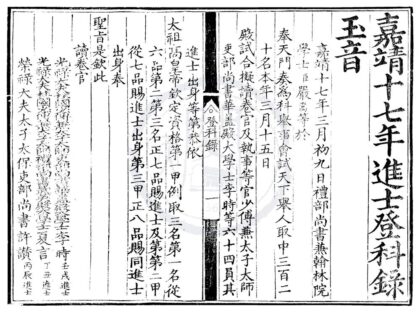 嘉靖十七年進士登科錄
玉音
嘉靖十七年三月初九日禮部尚書兼翰林院
學士臣嚴嵩等於
奉天門奏為科舉事會試天下舉人取中三百二
十名本年三月十五日
殿試合擬讀卷官及執事等官少傅兼太子太師
吏部尚書華蓋殿大學士李時等六十四員其
登科錄 一
進士出身等第恭依
太祖高皇帝欽定資格第一甲例取三名第一名從
六品第二第三名正七品賜進士及第第二甲
從七品賜進士出身第三甲正八品賜同進士
出身奉
聖旨是欽此
讀卷官
光祿大夫柱國 李時 壬戌進士
光祿大夫 夏言 丁丑進士
榮祿大夫太子太保吏部尚書許讚 丙辰進士